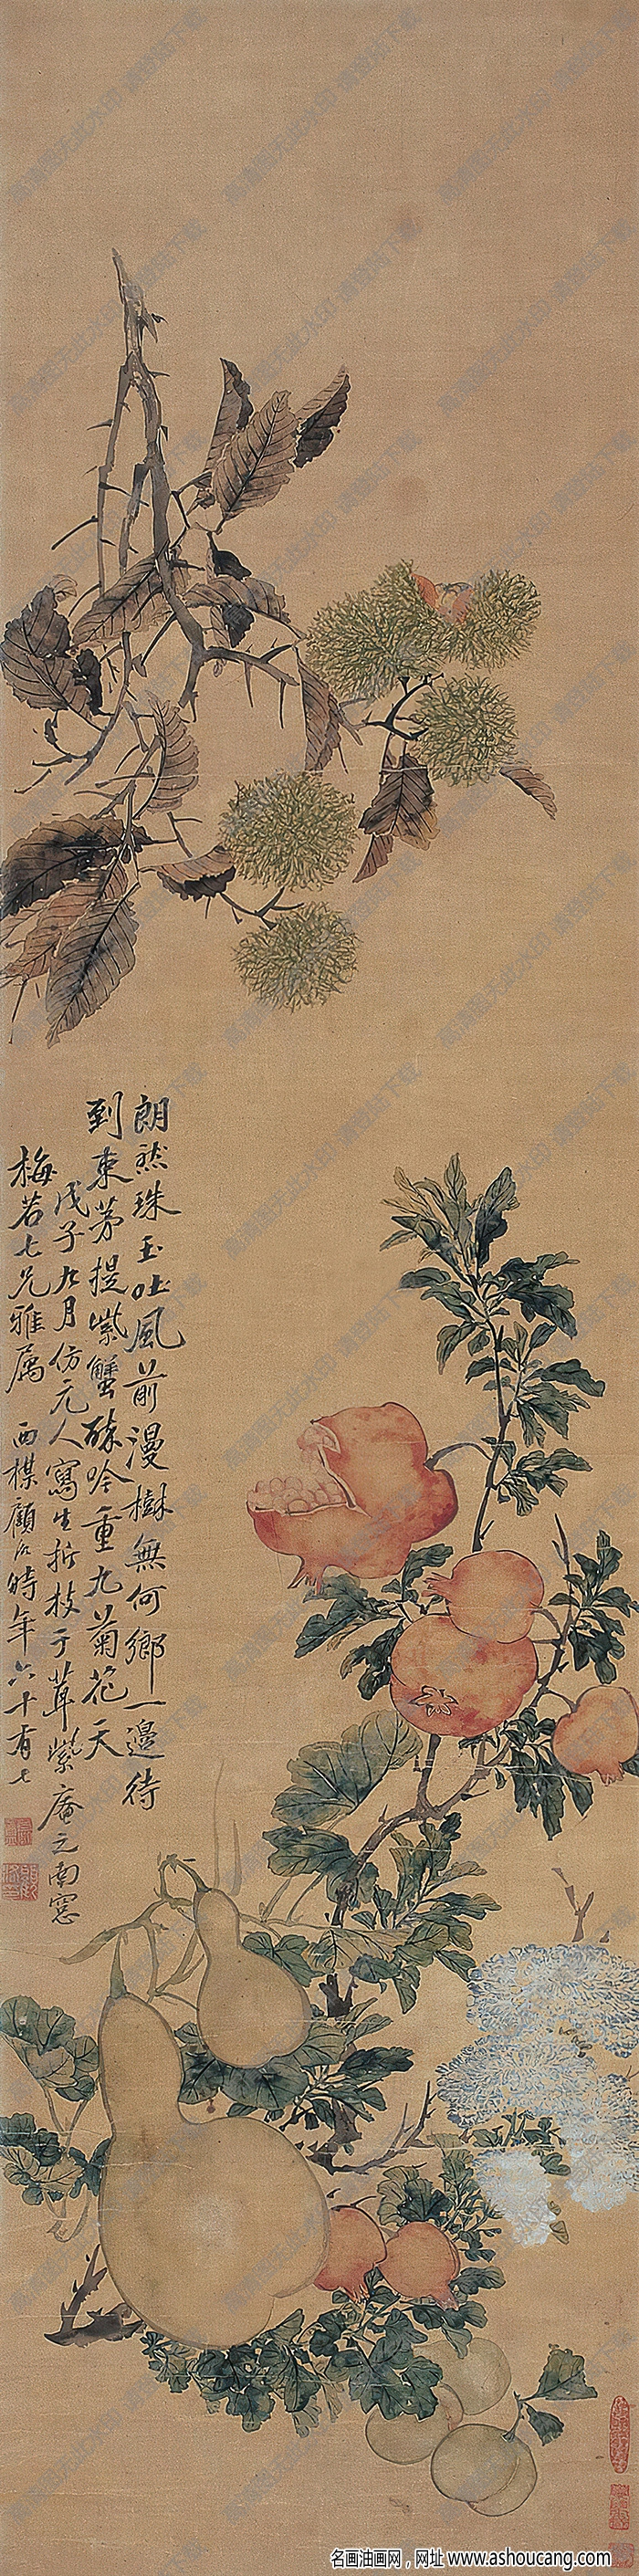 朗然珠玉吐風前漫樹無何鄉一邊待
到東茅提紫蟹酥吟重九菊花天
戊子九月仿元人寫生折枝于茸紫庵之南窓
梅若七兄雅属 西楳顧 時年六十有七
名画油画网，网址 www.ashoucang.com